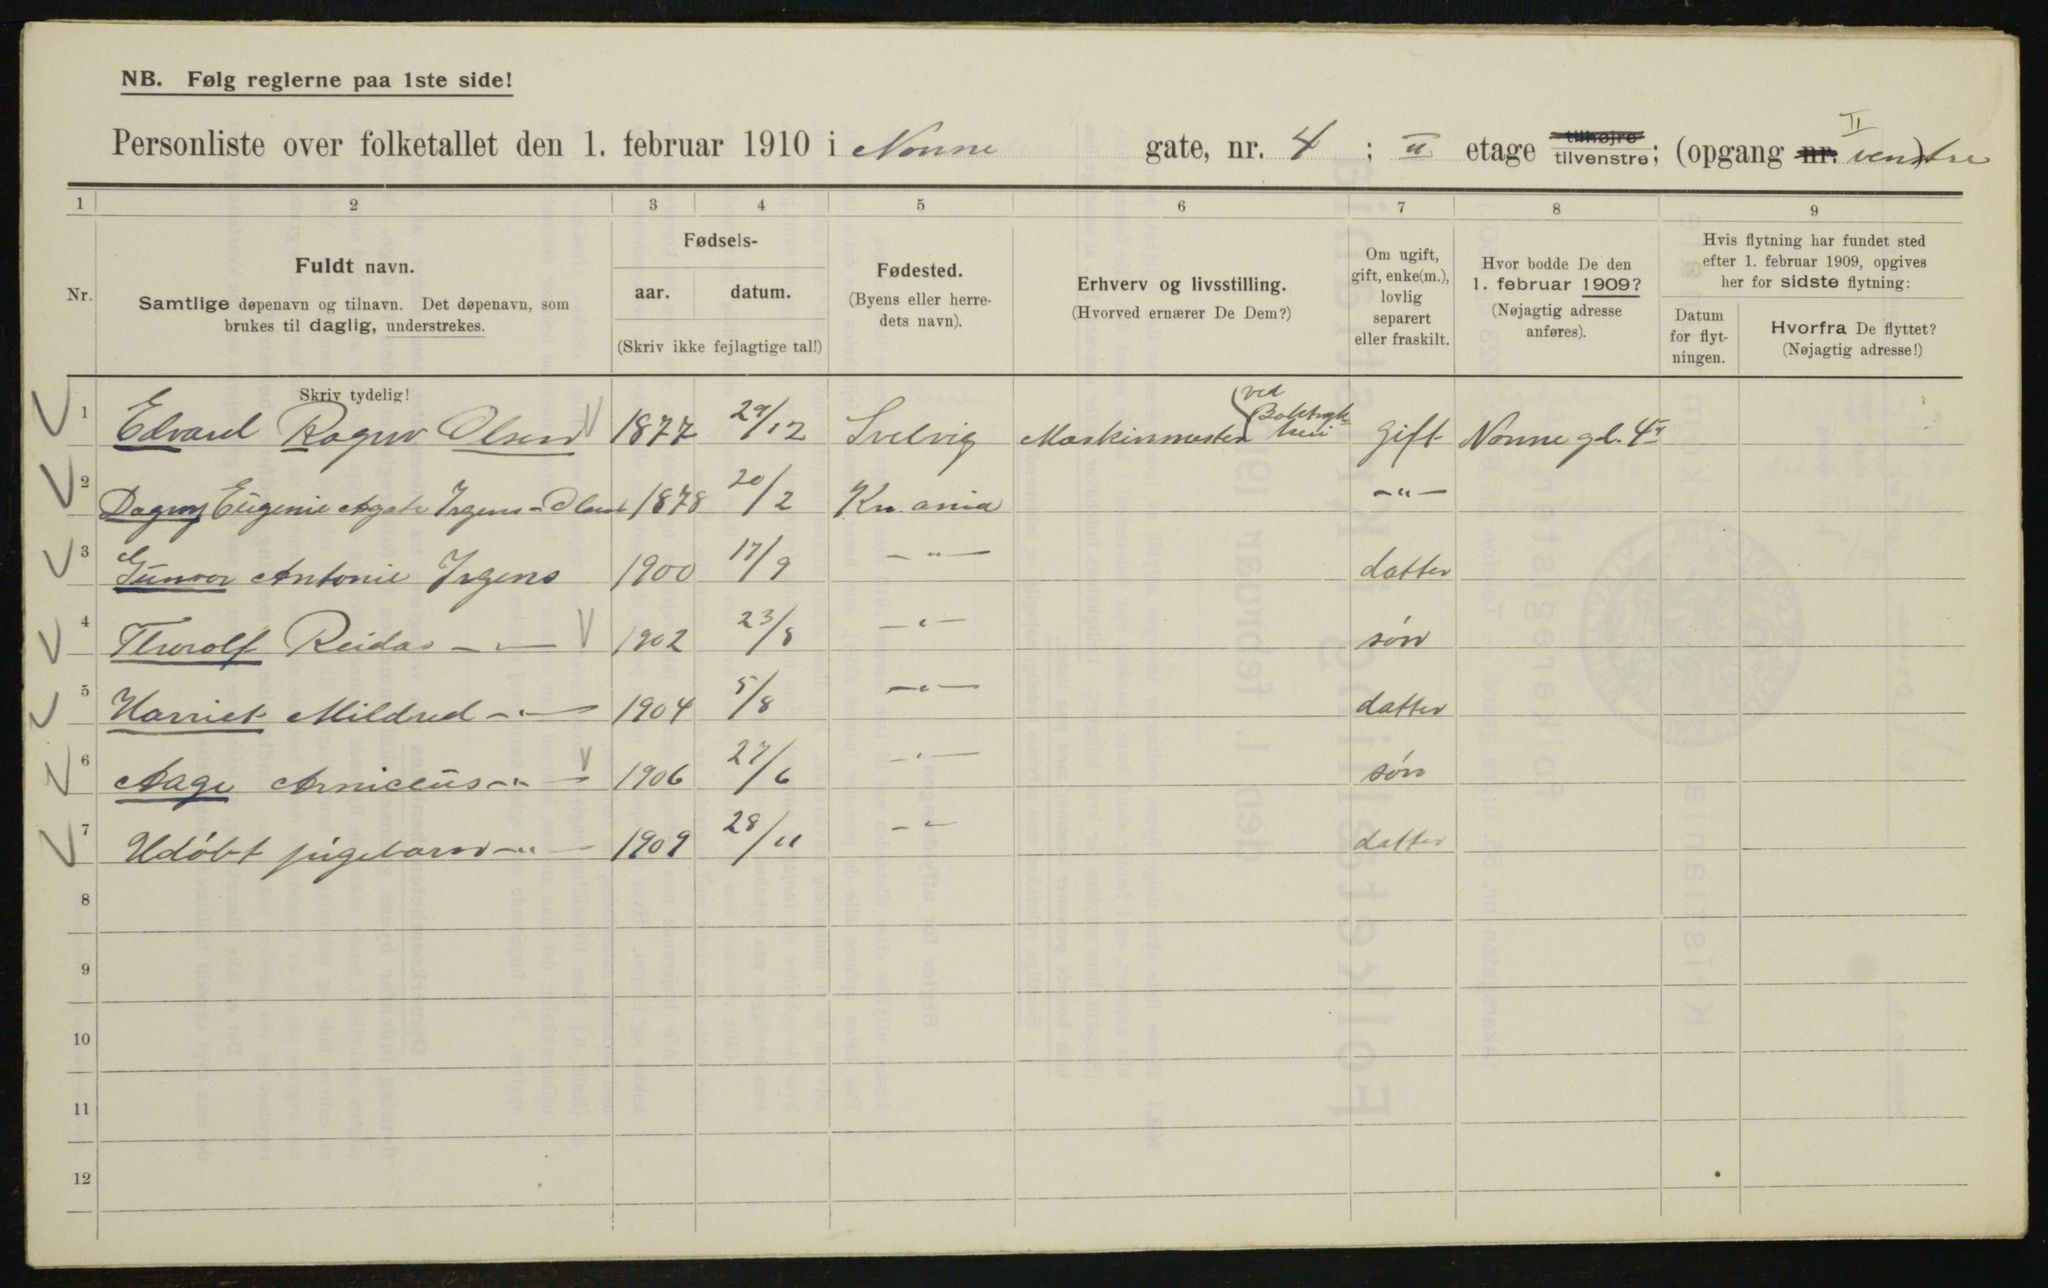 NB. Følg reglerne paa 1ste side!
Personliste over folketallet den 1. februar 1910 i Nonne gate, nr. 4 ; II etage tilhøjre tilvenstre; (opgang nr. II venstre)
1 2 3 4 5 6 7 8 9
Nr.
Fuldt navn.
Samtlige døpenavn og tilnavn. Det døpenavn, som
brukes til daglig, understrekes.
Fødsels-
aar. datum.
(Skriv ikke fejlagtige tal!)
Fødested.
(Byens eller herre-
dets navn).
Erhverv og livsstilling.
(Hvorved ernærer De Dem?)
Om ugift,
gift, enke(m.),
lovlig
separert
eller fraskilt.
Hvor bodde De den
1. februar 1909?
(Nøjagtig adresse
anføres).
Hvis flytning har fundet sted
efter 1. februar 1909, opgives
her for sidste flytning:
Datum
for flyt-
ningen.
Hvorfra De flyttet?
(Nøjagtig adresse!)
Skriv tydelig!
1 Edvard Olsen 1877 29/12 Svelvig Maskinmester ved Gift Nonne gd. 4
2 Dagny Eugenie Agate Irgens-Olsen 1878 20/2 Kr.ania -"-
3 Gunvor Antonie Irgens 1900 17/9 -"- datter
4 Thorolf Reidar -"- 1902 23/8 -"- søn
5 Harriet Mildred -"- 1904 5/8 -"- datter
6 Aage -"- 1906 27/6 -"- søn
7 Udøbt pigebarn -"- 1909 28/11 -"- datter
8
9
10
11
12